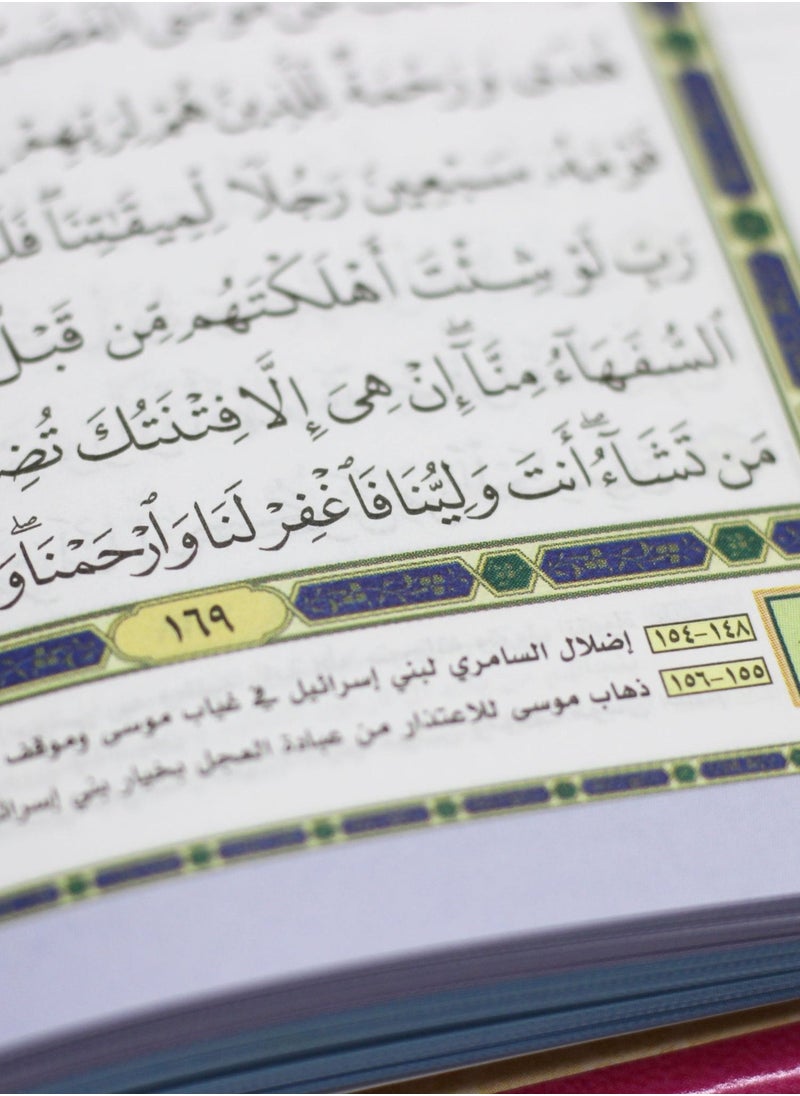 هُدًى وَرَحْمَةٌ لِّلَّذِينَ هُمْ لِرَبِّهِمْ
قَوْمَهُۥ سَبْعِينَ رَجُلًا لِّمِيقَٰتِنَاۖ
رَبِّ لَوْ شِئْتَ أَهْلَكْتَهُم مِّن قَبْلُ
ٱلسُّفَهَآءُ مِنَّآۖ إِنْ هِىَ إِلَّا فِتْنَتُكَ
مَن تَشَآءُۖ أَنتَ وَلِيُّنَا فَٱغْفِرْ لَنَا وَٱرْحَمْنَاۖ
١٦٩
١٤٨-١٥٤ إضلال السامري لبني إسرائيل في غياب موسى وموقف
١٥٥-١٥٦ ذهاب موسى للاعتذار من عبادة العجل بخيار بني